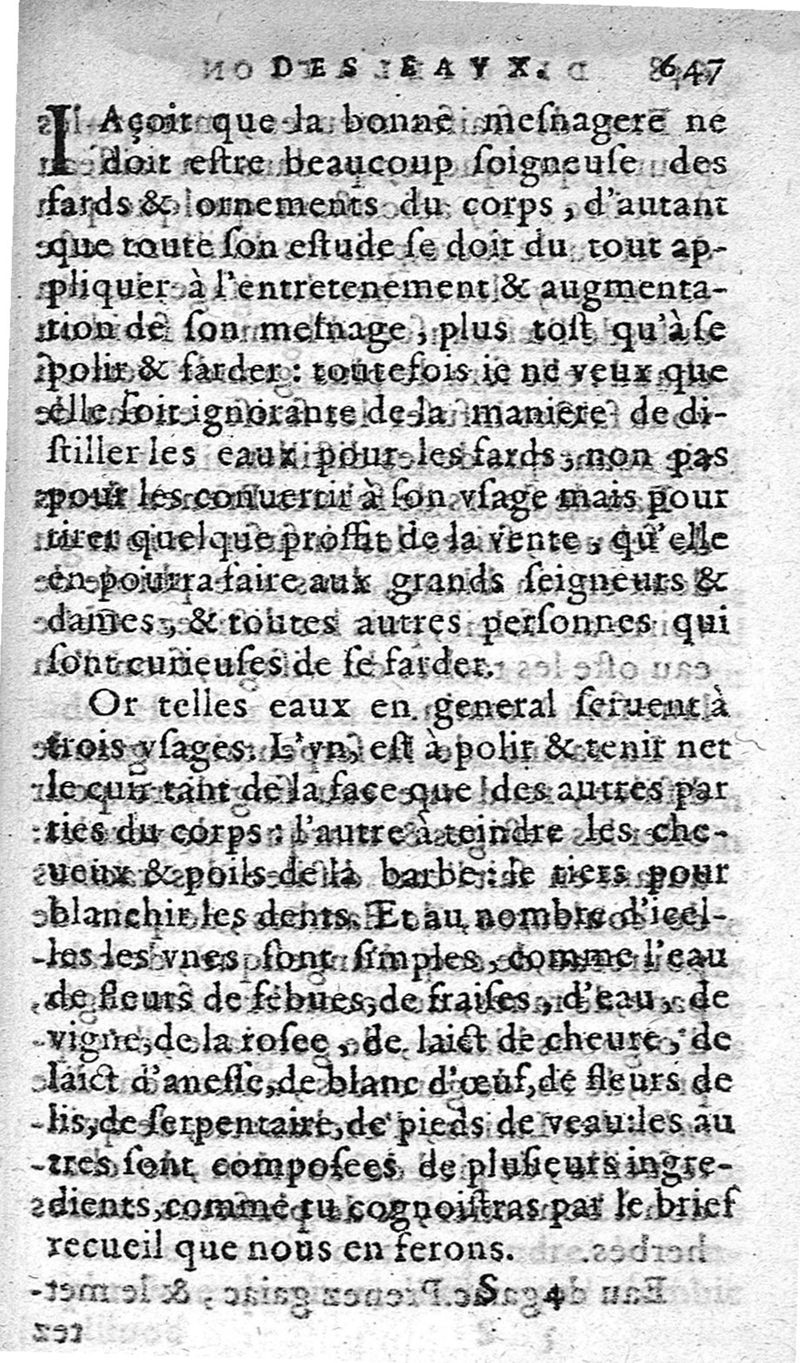 DES EAVX. 647
IAçoit que la bonne meſnagere ne
doit eſtre beaucoup ſoigneuſe des
fards & ornements du corps, d'autant
que toute ſon eſtude ſe doit du tout ap-
pliquer à l'entretenement & augmenta-
tion de ſon meſnage, plus toſt qu'à ſe
polir & farder : toutefois ie ne veux que
elle ſoit ignorante de la maniere de di-
ſtiller les eaux pour les fards, non pas
pour les conuertir à ſon vſage mais pour
tirer quelque proffit de la vente, qu'elle
en pourra faire aux grands ſeigneurs &
dames, & toutes autres perſonnes qui
ſont curieuſes de ſe farder.
Or telles eaux en general ſeruent à
trois vſages. L'vn, eſt à polir & tenir net
le cuir tant de la face que des autres par
ties du corps : l'autre à teindre les che-
ueux & poils de la barbe : le tiers pour
blanchir les dents. Et au nombre d'icel-
les les vnes ſont ſimples, comme l'eau
de fleurs de febues, de fraiſes, d'eau, de
vigne, de la roſee, de laict de cheure, de
laict d'aneſſe, de blanc d'œuf, de fleurs de
lis, de ſerpentaire, de pieds de veau: les au
tres ſont compoſees de pluſieurs ingre-
dients, comme tu cognoiſtras par le brief
recueil que nous en ferons.
S 4